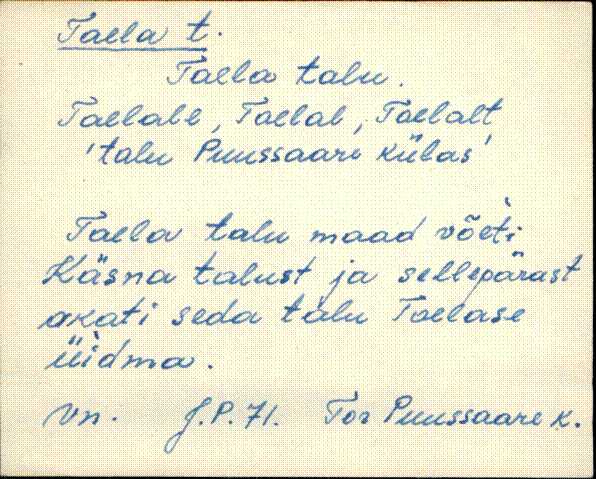 Taela t.
Taela talu.
Taelale, Taelal, Taelalt
'talu Puussaare külas'
Taela talu maad võeti
Käsna talust ja sellepärast
akati seda talu Taelase
üidma.
Vn. J.P. 71. Tor Puussaare k.